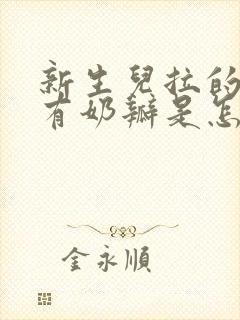 新生兒拉的
有奶瓣是怎
金永順